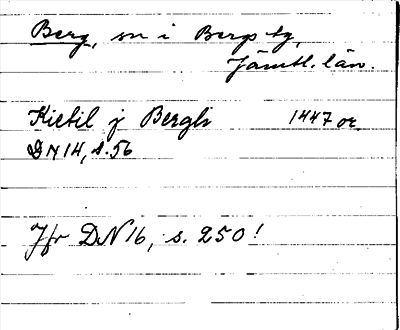 Berg, sn i Bergs tg,
Jämtl. län.
Kietil j Bergh 1447 or.
DN 14, s. 56
Jfr DN 16, s. 250!